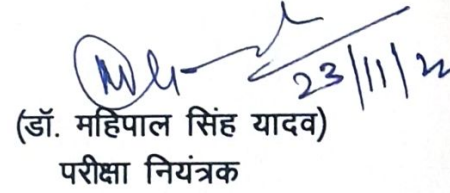 23/11/22
(डॉ. महिपाल सिंह यादव)
परीक्षा नियंत्रक